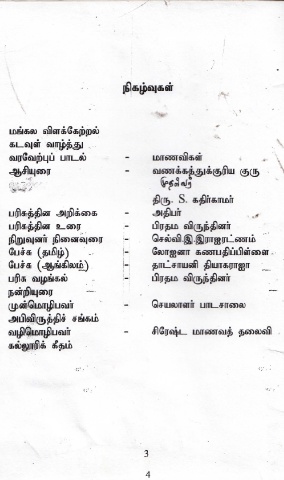 நிகழ்வுகள்
மங்கல விளக்கேற்றல்
கடவுள் வாழ்த்து
வரவேற்புப் பாடல் - மாணவிகள்
ஆசியுரை - வணக்கத்துக்குரிய குரு
முதல்வர்
திரு. S. கதிர்காமர்
பரிசுத்தின அறிக்கை - அதிபர்
பரிசுத்தின உரை - பிரதம விருந்தினர்
நிறுவுனர் நினைவுரை - செல்வி.இ.இராஜரட்ணம்
பேச்சு (தமிழ்) - லோஜனா கணபதிப்பிள்ளை
பேச்சு (ஆங்கிலம்) - தாட்சாயனி தியாகராஜா
பரிசு வழங்கல் - பிரதம விருந்தினர்
நன்றியுரை
முன்மொழிபவர் - செயலாளர் பாடசாலை
அபிவிருத்திச் சங்கம்
வழிமொழிபவர் - சிரேஷ்ட மாணவத் தலைவி
கல்லூரிக் கீதம்
3
4